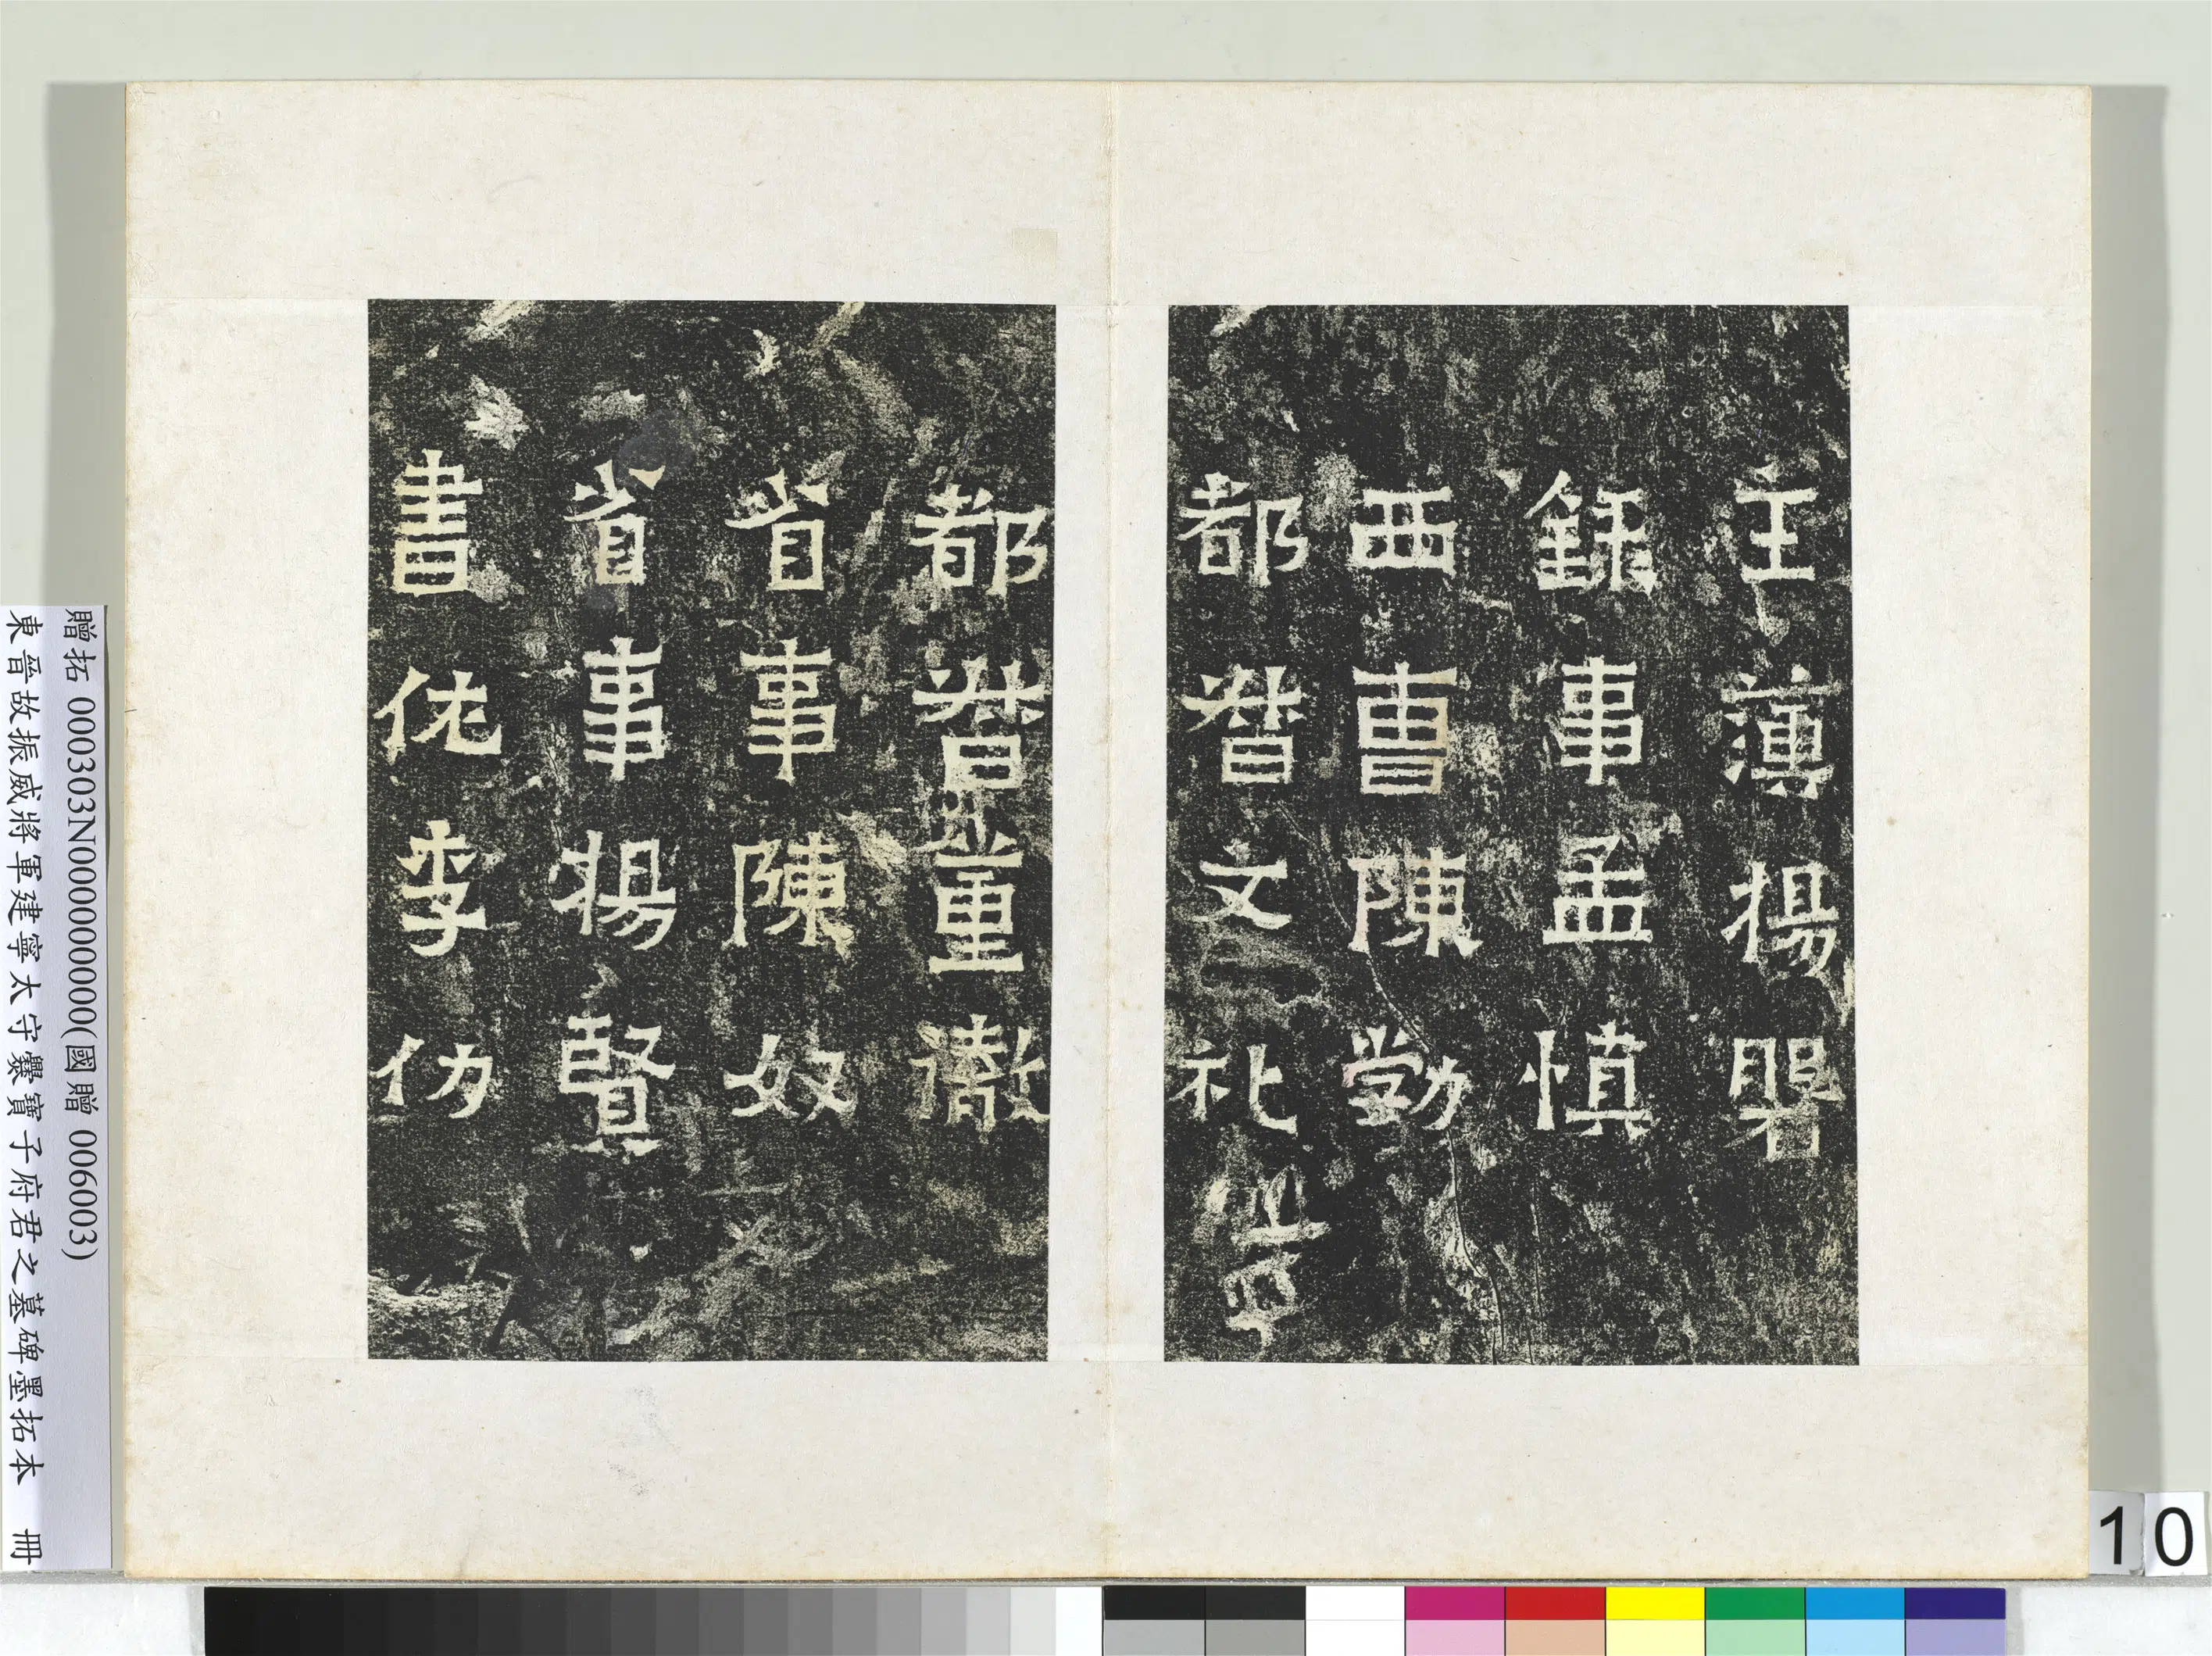 主簿楊磐
錄事孟慎
西曹陳勃
都督文礼
都督董徹
省事陳奴
省事楊賢
書佐李仂
贈拓 000303N000000000(國贈 006003)
東晉故振威將軍建寧太守爨寶子府君之墓碑墨拓本 冊
10